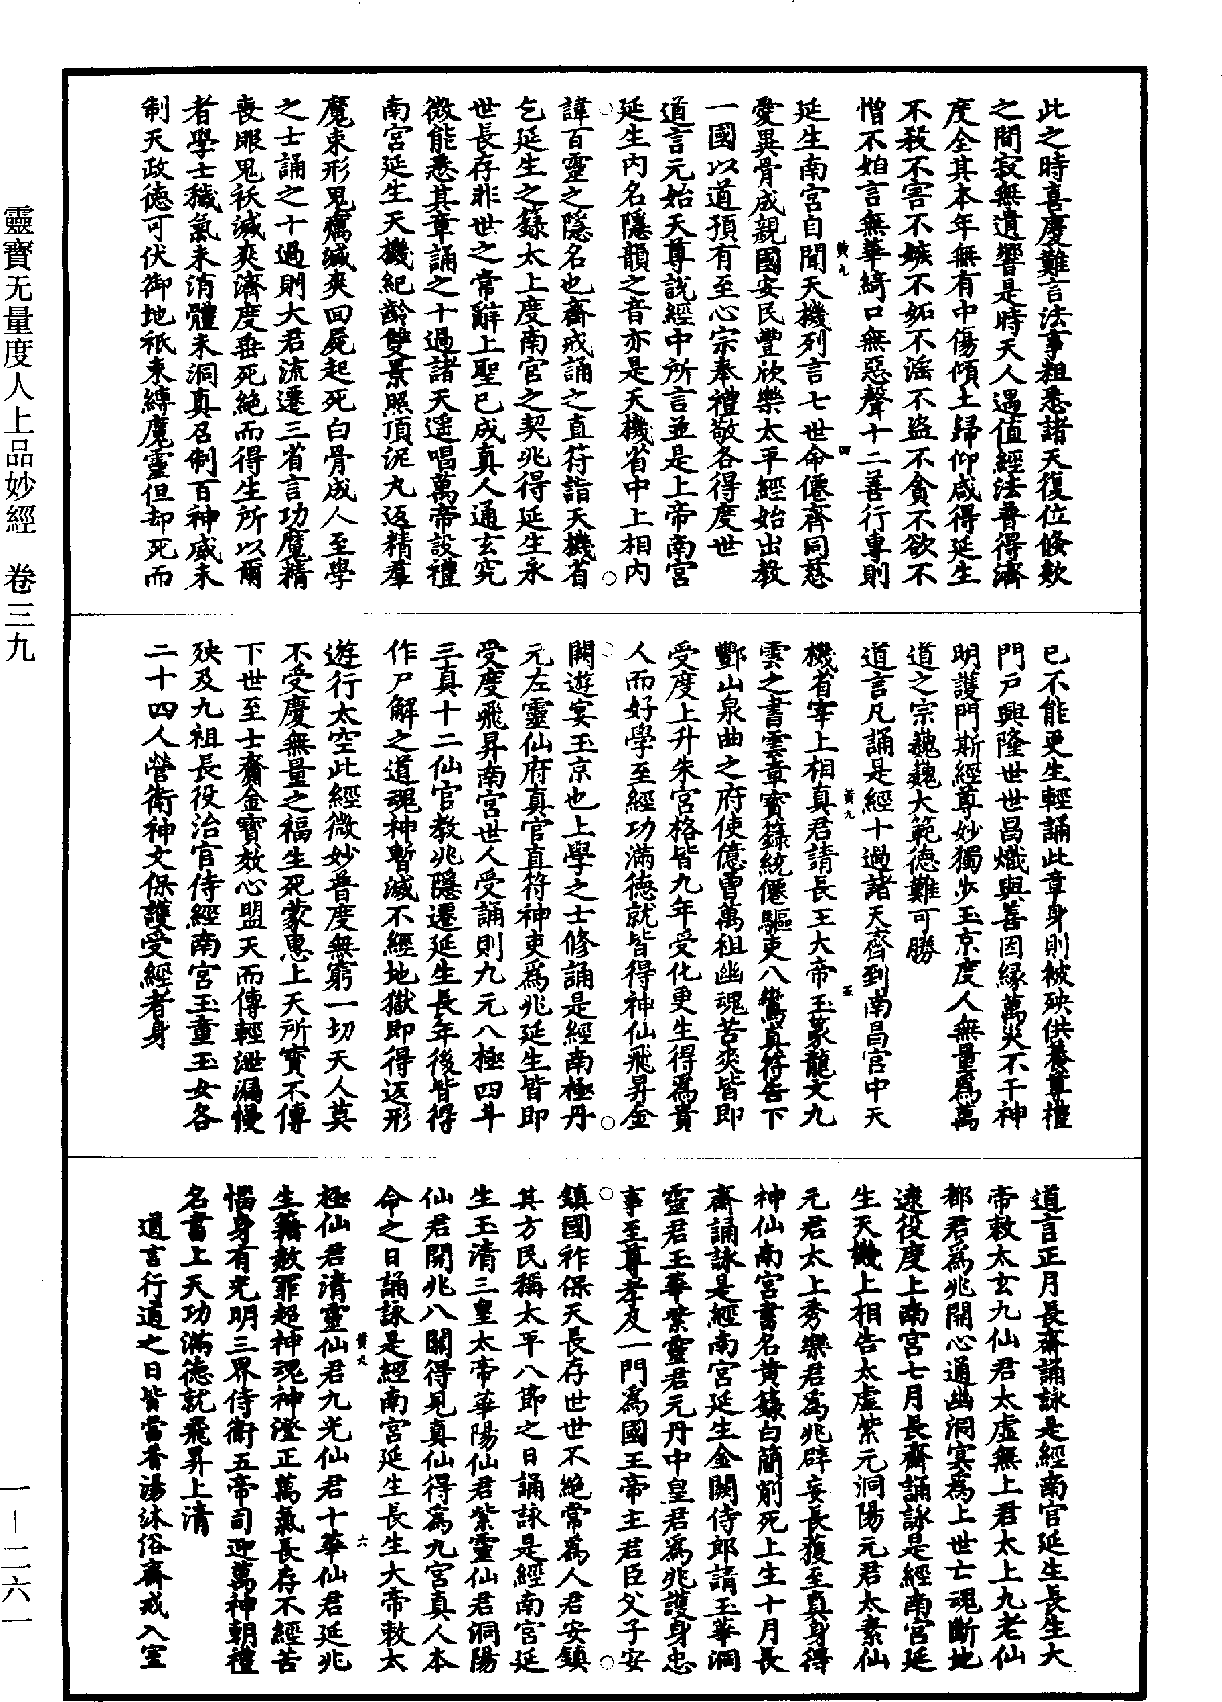 此之時喜慶難言法事粗悉諸天復位倐欻
之間寂無遺響是時天人遇值經法普得濟
度全其本年無有中傷傾土歸仰咸得延生
不殺不害不嫉不妬不滛不盜不貪不欲不
憎不妲言無華綺口無惡聲十二善行專則
延生南宮自聞天機列言七世命僊齊同慈
愛異骨成親國安民豐欣樂太平經始出教
一國以道預有至心宗奉禮敬各得度世
道言元始天尊説經中所言並是上帝南宮
延生内名隱韻之音亦是天機省中上相内
諱百靈之隱名也齋戒誦之直符詣天機省
乞延生之錄太上度南宮之契兆得延生永
世長存非世之常辭上聖已成真人通玄究
微能悉其章誦之十過諸天遥唱萬帝設禮
南宮延生天機紀齡雙景照頂泥丸返精羣
魔束形鬼癘滅爽回屍起死白骨成人至學
之士誦之十過則大君流遷三省言功魔精
喪眼鬼祅滅爽濟度垂死絶而得生所以爾
者學士穢氣未消體未洞真召制百神威未
制天政德可伏御地祇束縛魔靈但却死而
已不能更生輕誦此章身則被殃供養尊禮
門戸興隆世世昌熾與善因縁萬災不干神
明護門斯經尊妙獨步玉京度人無量爲萬
道之宗巍巍大範德難可勝
道言凡誦是經十過諸天齊到南昌宮中天
機省宰上相真君請長王大帝玉篆龍文九
雲之書雲章寶籙統僊驅吏八鸞真符告下
酆山泉曲之府使億曹萬祖幽魂苦爽皆即
受度上升朱宮格皆九年受化更生得爲貴
人而好學至經功滿德就皆得神仙飛昇金
闕遊宴玉京也上學之士修誦是經南極丹
元左靈仙府真官直符神吏爲兆延生皆即
受度飛昇南宮世人受誦則九元八極四斗
三真十二仙官教兆隱遷延生長年後皆得
作尸解之道魂神暫滅不經地獄即得返形
遊行太空此經微妙普度無窮一切天人莫
不受慶無量之福生死蒙惠上天所寶不傳
下世至士齎金寶效心盟天而傳輕泄漏慢
殃及九祖長役治官侍經南宮玉童玉女各
二十四人營衛神文保護受經者身
道言正月長齋誦詠是經南宮延生長生大
帝敕太玄九仙君太虛無上君太上九老仙
都君爲兆開心通幽洞冥爲上世亡魂斷地
逮役度上南宮七月長齋誦詠是經南宮延
生天機上相告太虛紫元洞陽元君太素仙
元君太上秀樂君爲兆辟妄長獲至真身得
神仙南宮書名黃籙白簡削死上生十月長
齋誦詠是經南宮延生金闕侍郎請玉華洞
靈君玉華紫靈君元丹中皇君爲兆護身忠
事至尊孝及一門爲國王帝主君臣父子安
鎮國祚保天長存世世不絶常爲人君安鎮
其方民稱太平八節之日誦詠是經南宮延
生玉清三皇太帝華陽仙君紫靈仙君洞陽
仙君開兆八關得見真仙得爲九宮真人本
命之日誦詠是經南宮延生長生大帝敕太
極仙君清靈仙君九光仙君十華仙君延兆
生籍敷罪超神魂神澄正萬氣長存不經苦
惱身有光明三界侍衛五帝司迎萬神朝禮
名書上天功滿德就飛昇上清
道言行道之日皆當香湯沐俗齋戒入室
靈寶无量度人上品妙經　卷三九
一—二六一